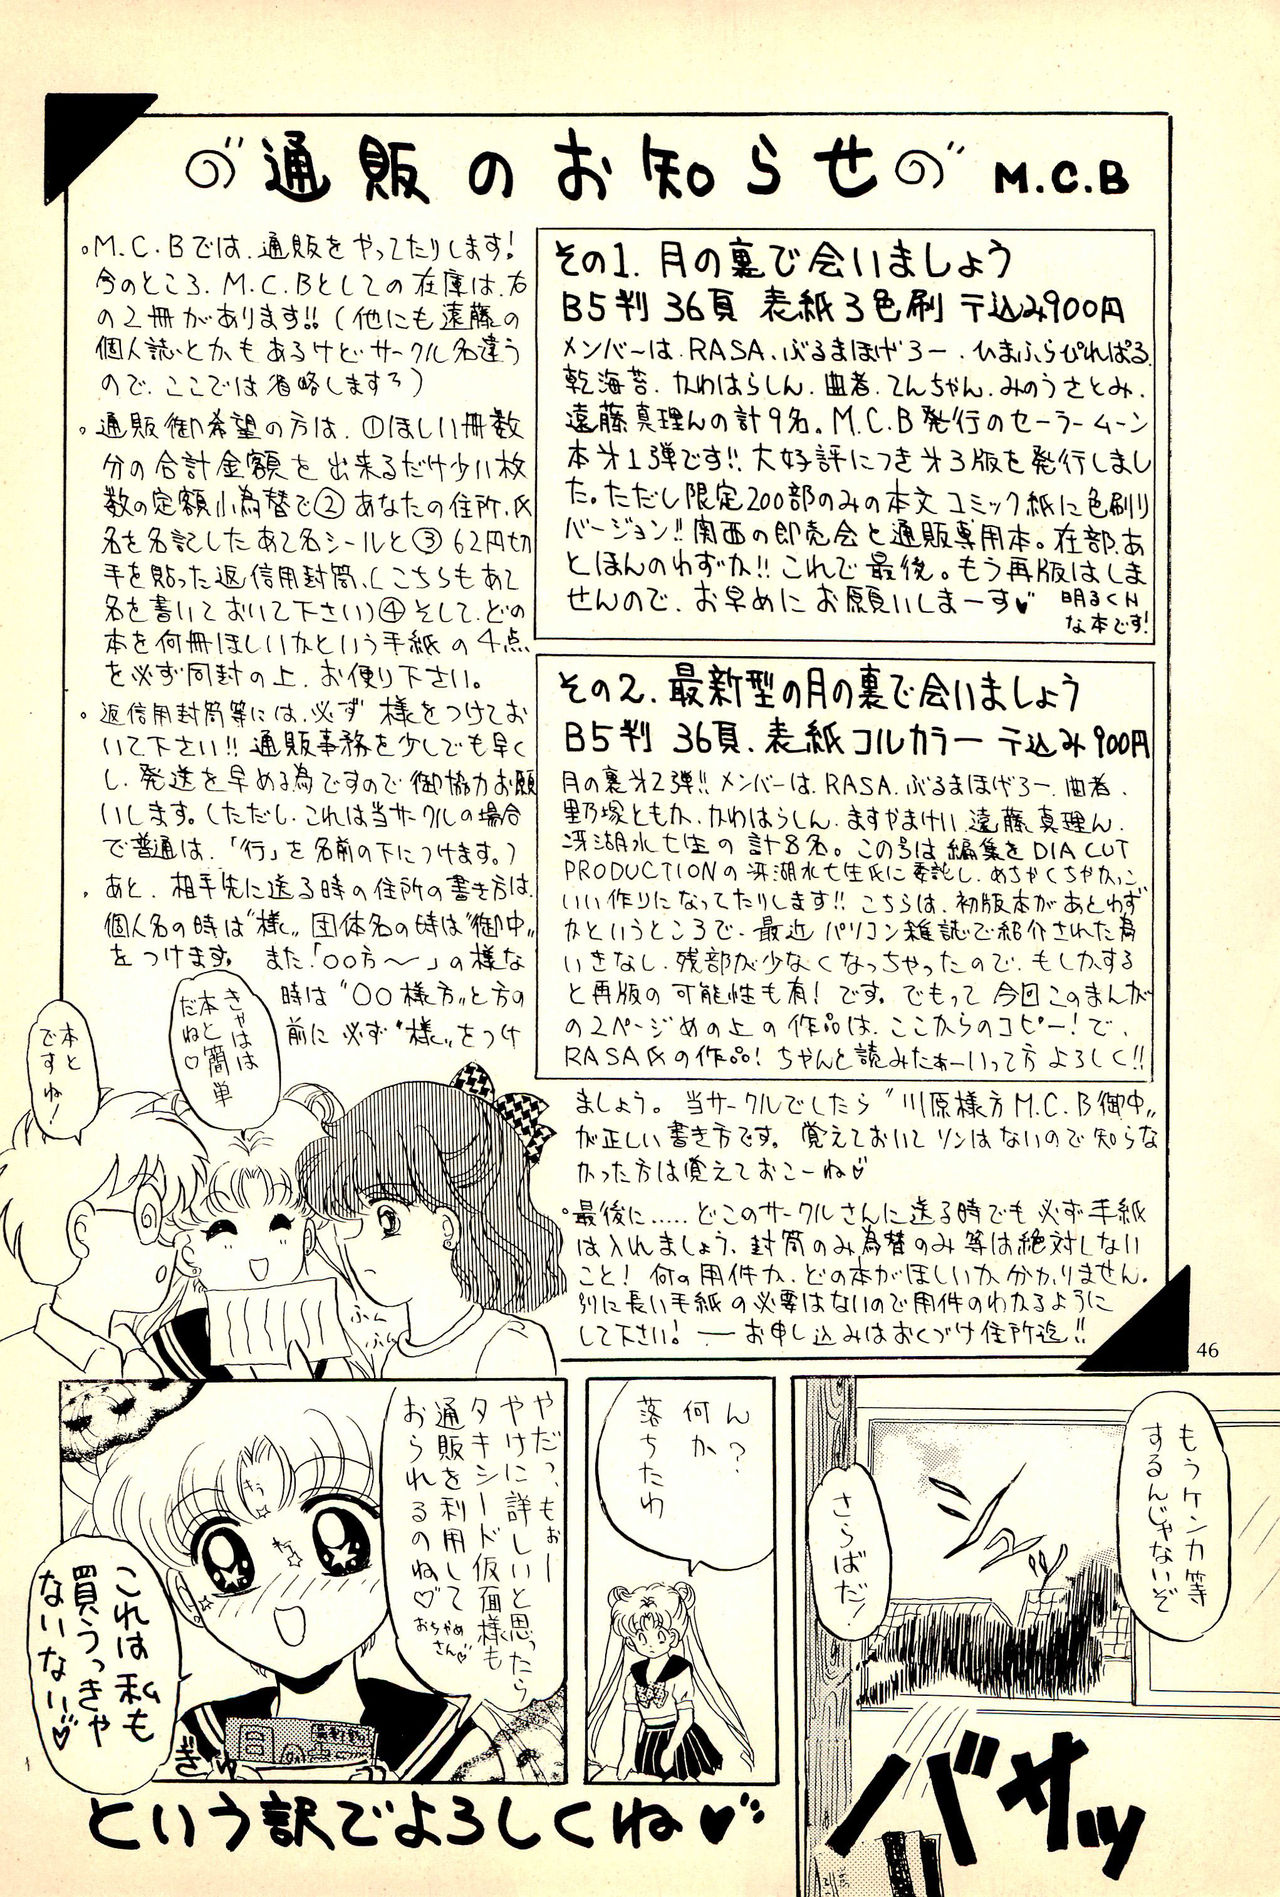 通販のお知らせ M.C.B
。M.C.Bでは、通販をやってたりします!
今のところ、M.C.Bとしての在庫は、右
の2冊があります!!(他にも遠藤の
個人誌とかもあるけどサークル名違う
ので、ここでは省略しますう)
。通販御希望の方は、①ほしい冊数
分の合計金額を出来るだけ少い枚
数の定額小為替で②あなたの住所、氏
名を名記したあて名シールと③62円切
手を貼った返信用封筒、(こちらもあて
名を書いておいて下さい)④そして、どの
本を何冊ほしいかという手紙の4点
を必ず同封の上、お便り下さい。
。返信用封筒等には、必ず様をつけてお
いて下さい!!通販事務を少しでも早く
し、発送を早める為ですので御協力お願
いします。(ただし、これは当サークルの場合
で普通は、「行」を名前の下につけます。)
。あと、相手先に送る時の住所の書き方は、
個人名の時は"様"、団体名の時は"御中"
をつけます。また「○○方〜」の様な
時は"○○様方"と方の
前に必ず"様"をつけ
ましょう。当サークルでしたら"川原様方M.C.B御中"
が正しい書き方です。覚えておいてソンはないので知らな
かった方は覚えておこーね♡
。最後に……どこのサークルさんに送る時でも必ず手紙
は入れましょう、封筒のみ為替のみ等は絶対しない
こと!何の用件か、どの本がほしいか分かりません。
別に長い手紙の必要はないので用件のわかるように
して下さい!―お申し込みはおくづけ住所迄!!
その1.月の裏で会いましょう
B5判 36頁 表紙3色刷 〒込み900円
メンバーは、RASA、ぶるまほげろー、ひまふらぴれぱる、
乾海苔、かわはらしん、曲者、てんちゃん、みのうさとみ、
遠藤真理んの計9名。M.C.B発行のセーラームーン
本オ1弾です!!大好評につきオ3版を発行しまし
た。ただし限定200部のみの本文コミック紙に色刷り
バージョン!!関西の即売会と通販専用本。在部、あ
とほんのわずか!!これで最後。もう再版はしま
せんので、お早めにお願いしまーす♡
明るくH
な本です!
その2.最新型の月の裏で会いましょう
B5判 36頁、表紙コルカラー 〒込み900円
月の裏オ2弾!!メンバーは、RASA、ぶるまほげろー、曲者、
野乃塚ともか、かわはらしん、ますやまけい、遠藤真理ん、
冴湖水七生の計8名。この号は編集をDIA CUT
PRODUCTIONの冴湖水七生氏に委託し、めちゃくちゃかっこ
いい作りになってたりします!!こちらは、初版本があとわず
かというところで、最近パソコン雑誌で紹介された為
いきなし、残部が少なくなっちゃったので、もしかする
と再版の可能性も有!です。でもって今回このまんが
の2ページめの上の作品は、ここからのコピー!で、
RASA氏の作品!ちゃんと読みたぁーいって方よろしく!!
きゃはは
本と簡単
だね♡
本と
ですね!
ふんふん
46
もうケンカ等
するんじゃないぞ
さらばだ!
バサッ
ん?
何か
落ちたわ
やだっ、もぉー
やけに詳しいと思ったら
タキシード仮面様も
通販を利用して
おられるのね♡
おちゃめ
さん♡
これは私も
買うっきゃ
ないない♡
ぎゅ
という訳でよろしくね♡